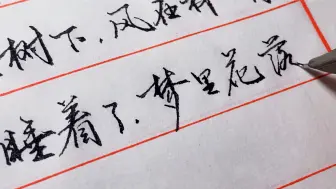 树下，风在
睡着了，梦里花落